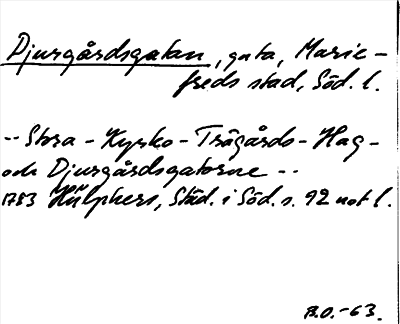 Djurgårdsgatan, gata, Marie-
freds stad, Söd. l.
-- Stora - Kyrko - Trägårds - Hag-
och Djurgårdsgatorne --
1783 Hülphers, Städ. i Söd. s. 92 not l.
B.O. -63.